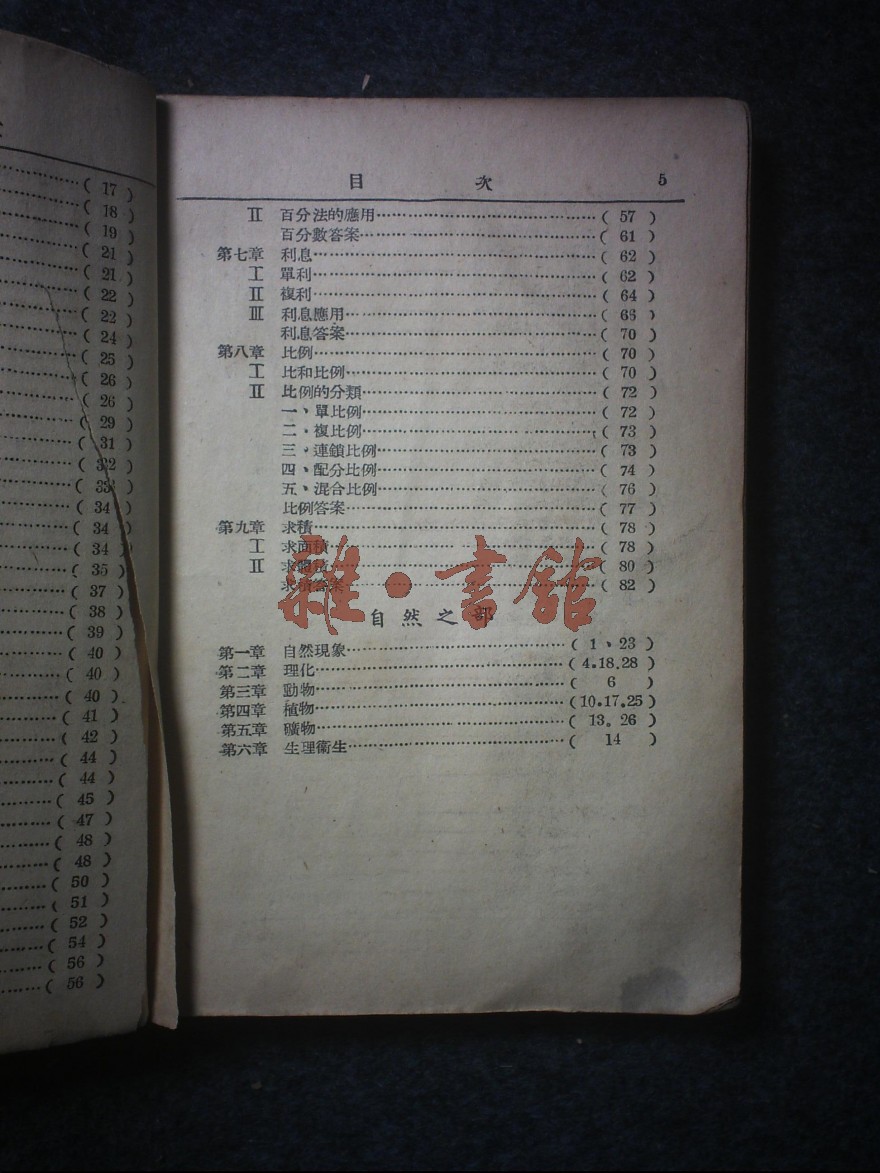 ( 17 )
( 18 )
( 19 )
( 21 )
( 21 )
( 22 )
( 22 )
( 24 )
( 25 )
( 26 )
( 26 )
( 29 )
( 31 )
( 32 )
( 33 )
( 34 )
( 34 )
( 34 )
( 35 )
( 37 )
( 38 )
( 39 )
( 40 )
( 40 )
( 40 )
( 41 )
( 42 )
( 44 )
( 44 )
( 45 )
( 47 )
( 48 )
( 48 )
( 50 )
( 51 )
( 52 )
( 54 )
( 56 )
( 56 )
目 次 5
II 百分法的應用……( 57 )
百分數答案……( 61 )
第七章 利息……( 62 )
I 單利……( 62 )
II 複利……( 64 )
III 利息應用……( 66 )
利息答案……( 70 )
第八章 比例……( 70 )
I 比和比例……( 70 )
II 比例的分類……( 72 )
一、單比例……( 72 )
二、複比例……( 73 )
三、連鎖比例……( 73 )
四、配分比例……( 74 )
五、混合比例……( 76 )
比例答案……( 77 )
第九章 求積……( 78 )
I 求面積……( 78 )
II 求體積……( 80 )
求積答案……( 82 )
雜·書館
自然之部
第一章 自然現象……( 1、23 )
第二章 理化……( 4.18.28 )
第三章 動物……( 6 )
第四章 植物……(10.17.25 )
第五章 礦物……( 13。26 )
第六章 生理衞生……( 14 )